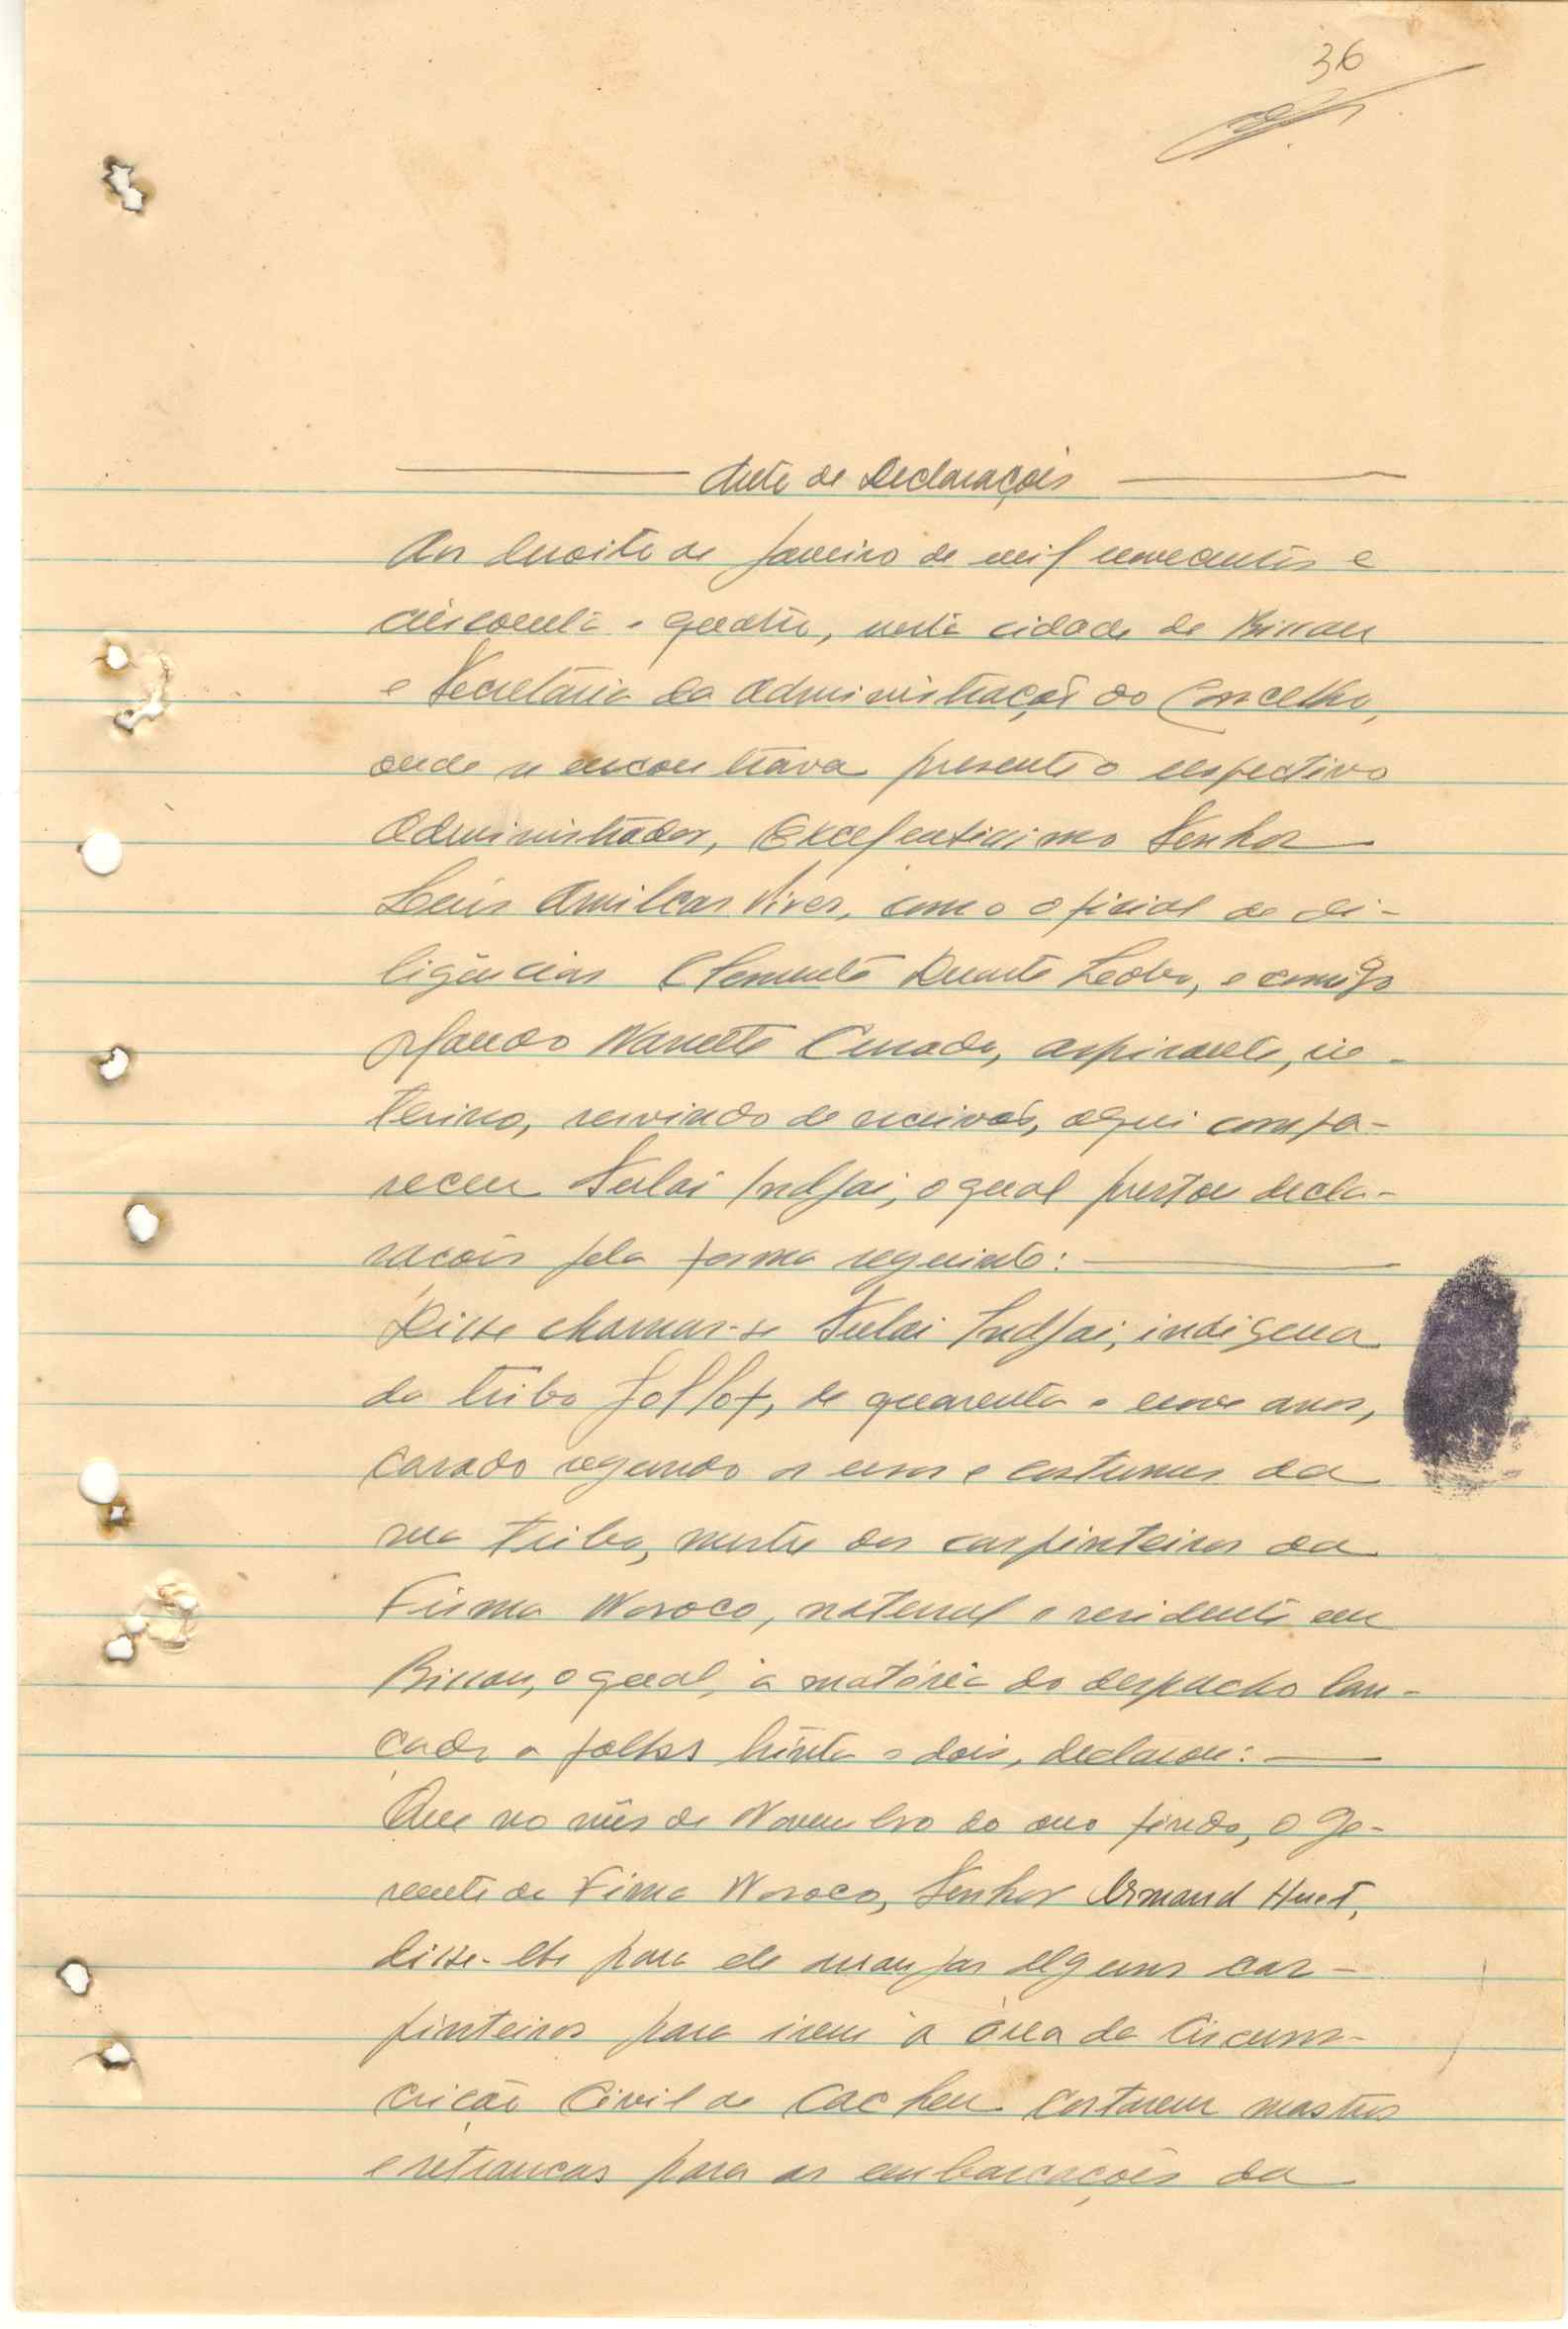 36
Auto de Declarações
Aos dezoito de Janeiro de mil novecentos e
cincoenta e quatro, nesta cidade de Bissau
e Secretária da Administração do Concelho,
onde se encontrava presente o respectivo
Administrador, Excelentissimo Senhor
Luís Amilcar Vives, como oficial de di-
ligências Clemente Duarte Lobo, e comigo
Orlando Duarte, aspirante, in-
terino, servindo de escrivão, aqui compa-
receu Sulai Indjai, o qual prestou decla-
rações pela forma seguinte:
Disse chamar-se Sulai Indjai, indigena
da tribo Jollof, de quarenta e nove anos,
casado segundo os usos e costumes da
sua tribo, mestre dos carpinteiros da
Firma Nosoco, natural e residente em
Bissau, o qual, à matéria do despacho lan-
çado a folhas trinta e dois, declarou:
Que no mês de Novembro do ano findo, o ge-
rente da Firma Nosoco, Senhor Armand Huet,
disse-lhe para ele arranjar alguns car-
pinteiros para irem à área da Circuns-
crição Civil de Cacheu cortarem mastros
e retrancas para as embarcações da